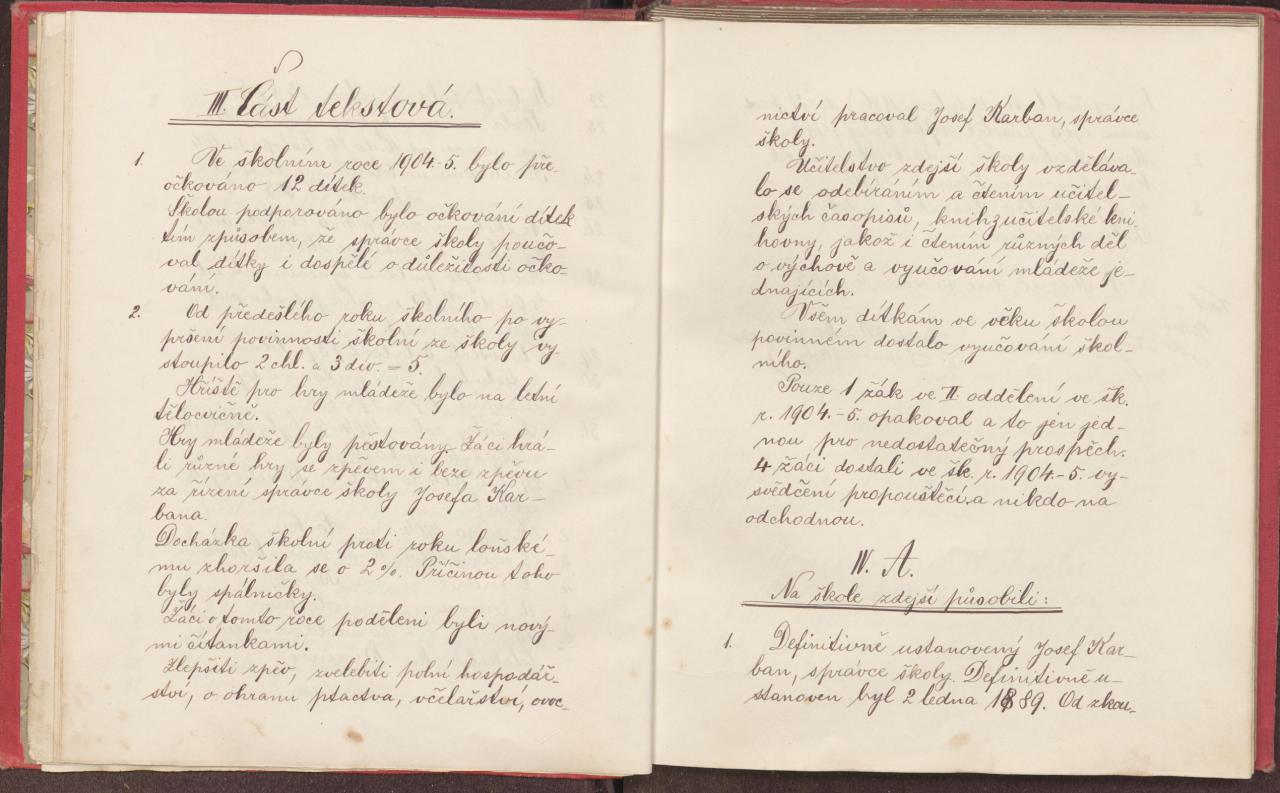 III. Část tekstová.
1. Ve školním roce 1904-5. bylo pře-
očkováno 12 dítek.
Školou podporováno bylo očkování dítek
tím způsobem, že správce školy poučo-
val dítky i dospělé o důležitosti očko-
vání.
2. Od předešlého roku školního po vy-
pršení povinnosti školní ze školy vy-
stoupilo 2 chl. a 3 div. = 5.
Hřiště pro hry mládeže bylo na letní
tělocvičně.
Hry mládeže byly pěstovány. Žáci hrá-
li různé hry se zpěvem i beze zpěvu
za řízení správce školy Josefa Kar-
bana.
Docházka školní proti roku loňské-
mu zhoršila se o 2%. Příčinou toho
byly spálničky.
Žáci v tomto roce poděleni byli nový-
mi čítankami.
Zlepšiti zpěv, zvelebiti polní hospodář-
ství, o ohranu ptactva, včelařství, ovoc-
nictví pracoval Josef Karban, správce
školy.
Učitelstvo zdejší školy vzděláva-
lo se odebíráním a čtením učitel-
ských časopisů, knih z učitelské kni
hovny, jakož i čtením různých děl
o výchově a vyučování mládeže je-
dnajících.
Všem dítkám ve věku školou
povinném dostalo vyučování škol-
ního.
Pouze 1 žák ve II. oddělení ve šk.
r. 1904.-5. opakoval a to jen jed-
nou pro nedostatečný prospěch.
4 žáci dostali ve šk. r. 1904.-5. vy-
svědčení propouštěcí a nikdo na
odchodnou.
IV. A.
Na škole zdejší působili:
1. Definitivně ustanovený Josef Kar-
ban, správce školy. Definitivně u-
stanoven byl 2 ledna 1889. Od zkou-